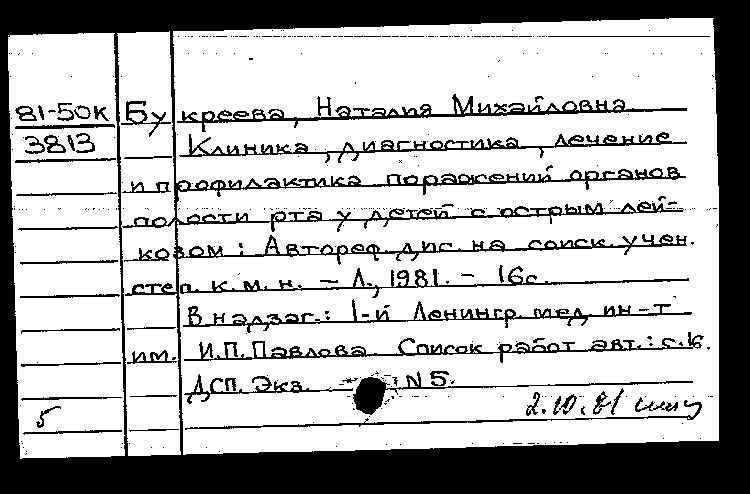 81-50К Букреева, Наталия Михайловна
3813 Клиника, диагностика, лечение
и профилактика поражений органов
полости рта у детей с острым лей-
козом: Автореф. дис. на соиск. учен.
степ. к.м.н. – Л., 1981. – 16с.
В надзаг.: 1-й Ленингр. мед. ин-т
им. И.П. Павлова. Список работ авт.: с.16.
ДСП. Экз. N 5.
5 2.10.81